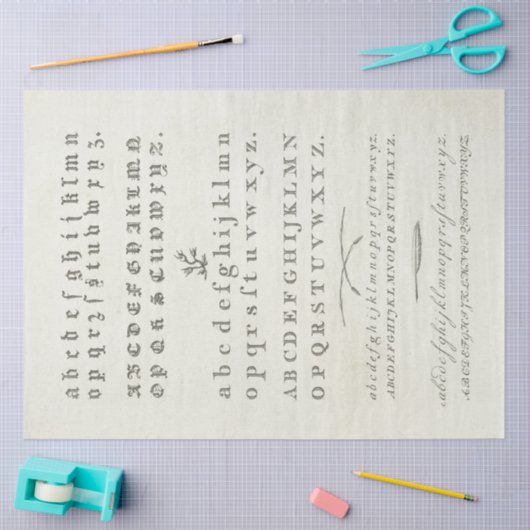 a b c d e f g h i j k l m n
o p q r z ſ s t u v w x y z.
A B C D E F G H I K L M N
O P Q R S T U V W X Y Z.
a b c d e f g h i j k l m n
o p q r s ſ t u v w x y z.
A B C D E F G H I J K L M N
O P Q R S T U V W X Y Z.
a b c d e f g h i j k l m n o p q r s ſ t u v w x y z.
A B C D E F G H I J K L M N O P Q R S T U V W X Y Z.
a b c d e f g h i j k l m n o p q r s ſ t u v w x y z.
A B C D E F G H I J K L M N O P Q R S T U V W X Y Z.